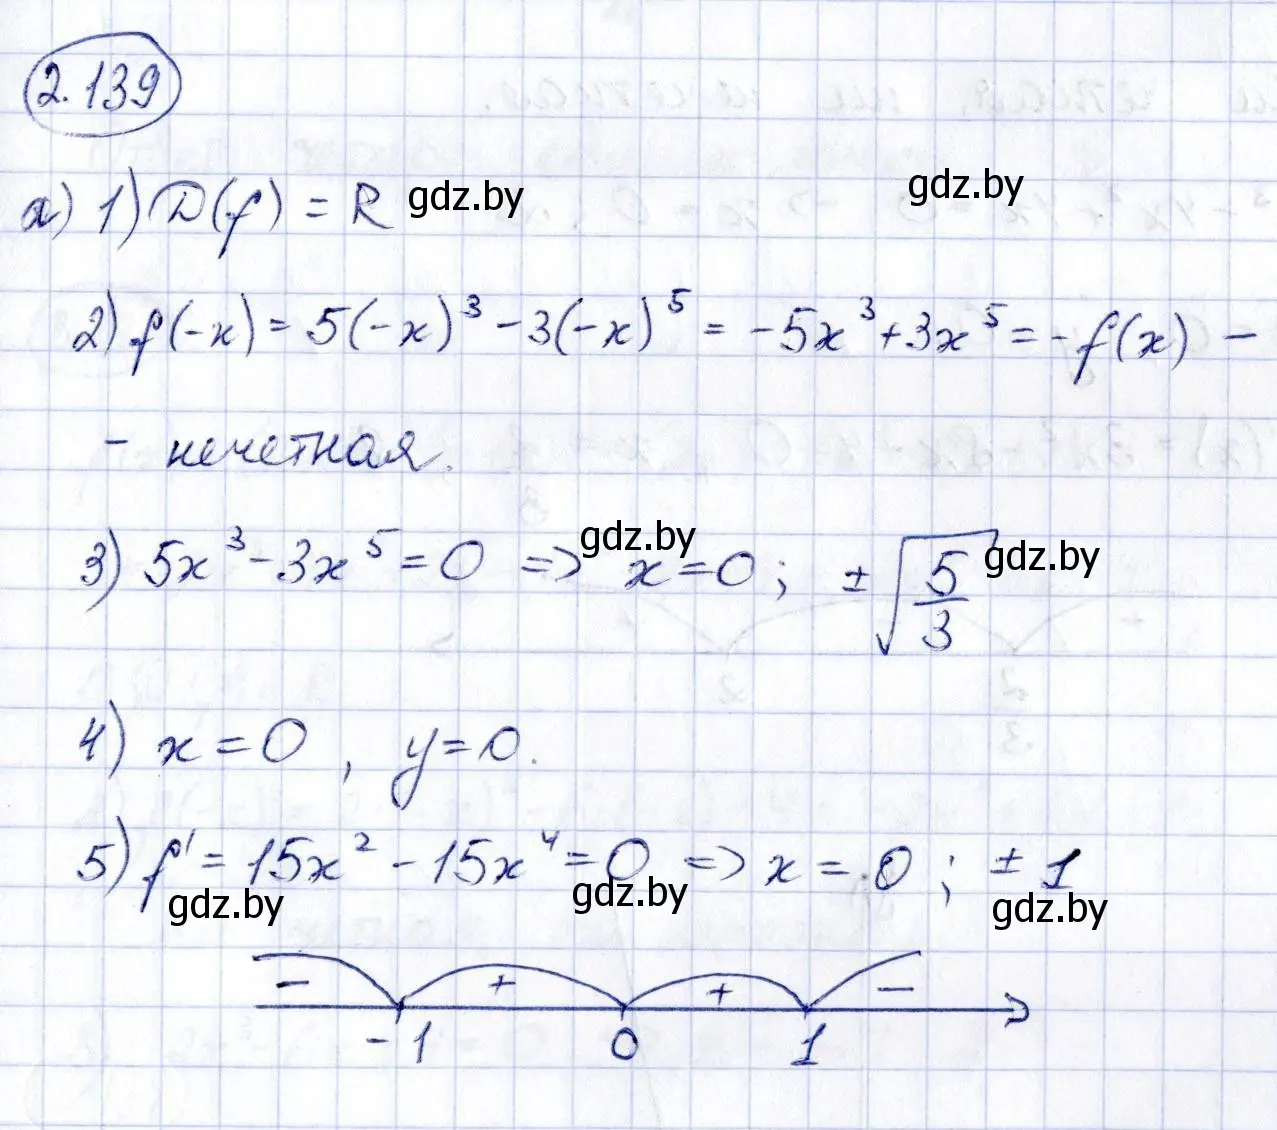 2.139
а) 1) D(f) = R gdz.by gdz.by
2) f(-x) = 5(-x)³ - 3(-x)⁵ = -5x³ + 3x⁵ = -f(x) -
- нечетная.
3) 5x³ - 3x⁵ = 0 => x = 0; ±√(5/3) gdz.by gdz.by
4) x = 0, y = 0.
5) f' = 15x² - 15x⁴ = 0 => x = 0; ± 1
gdz.by gdz.by gdz.by
- + + -
-1 0 1